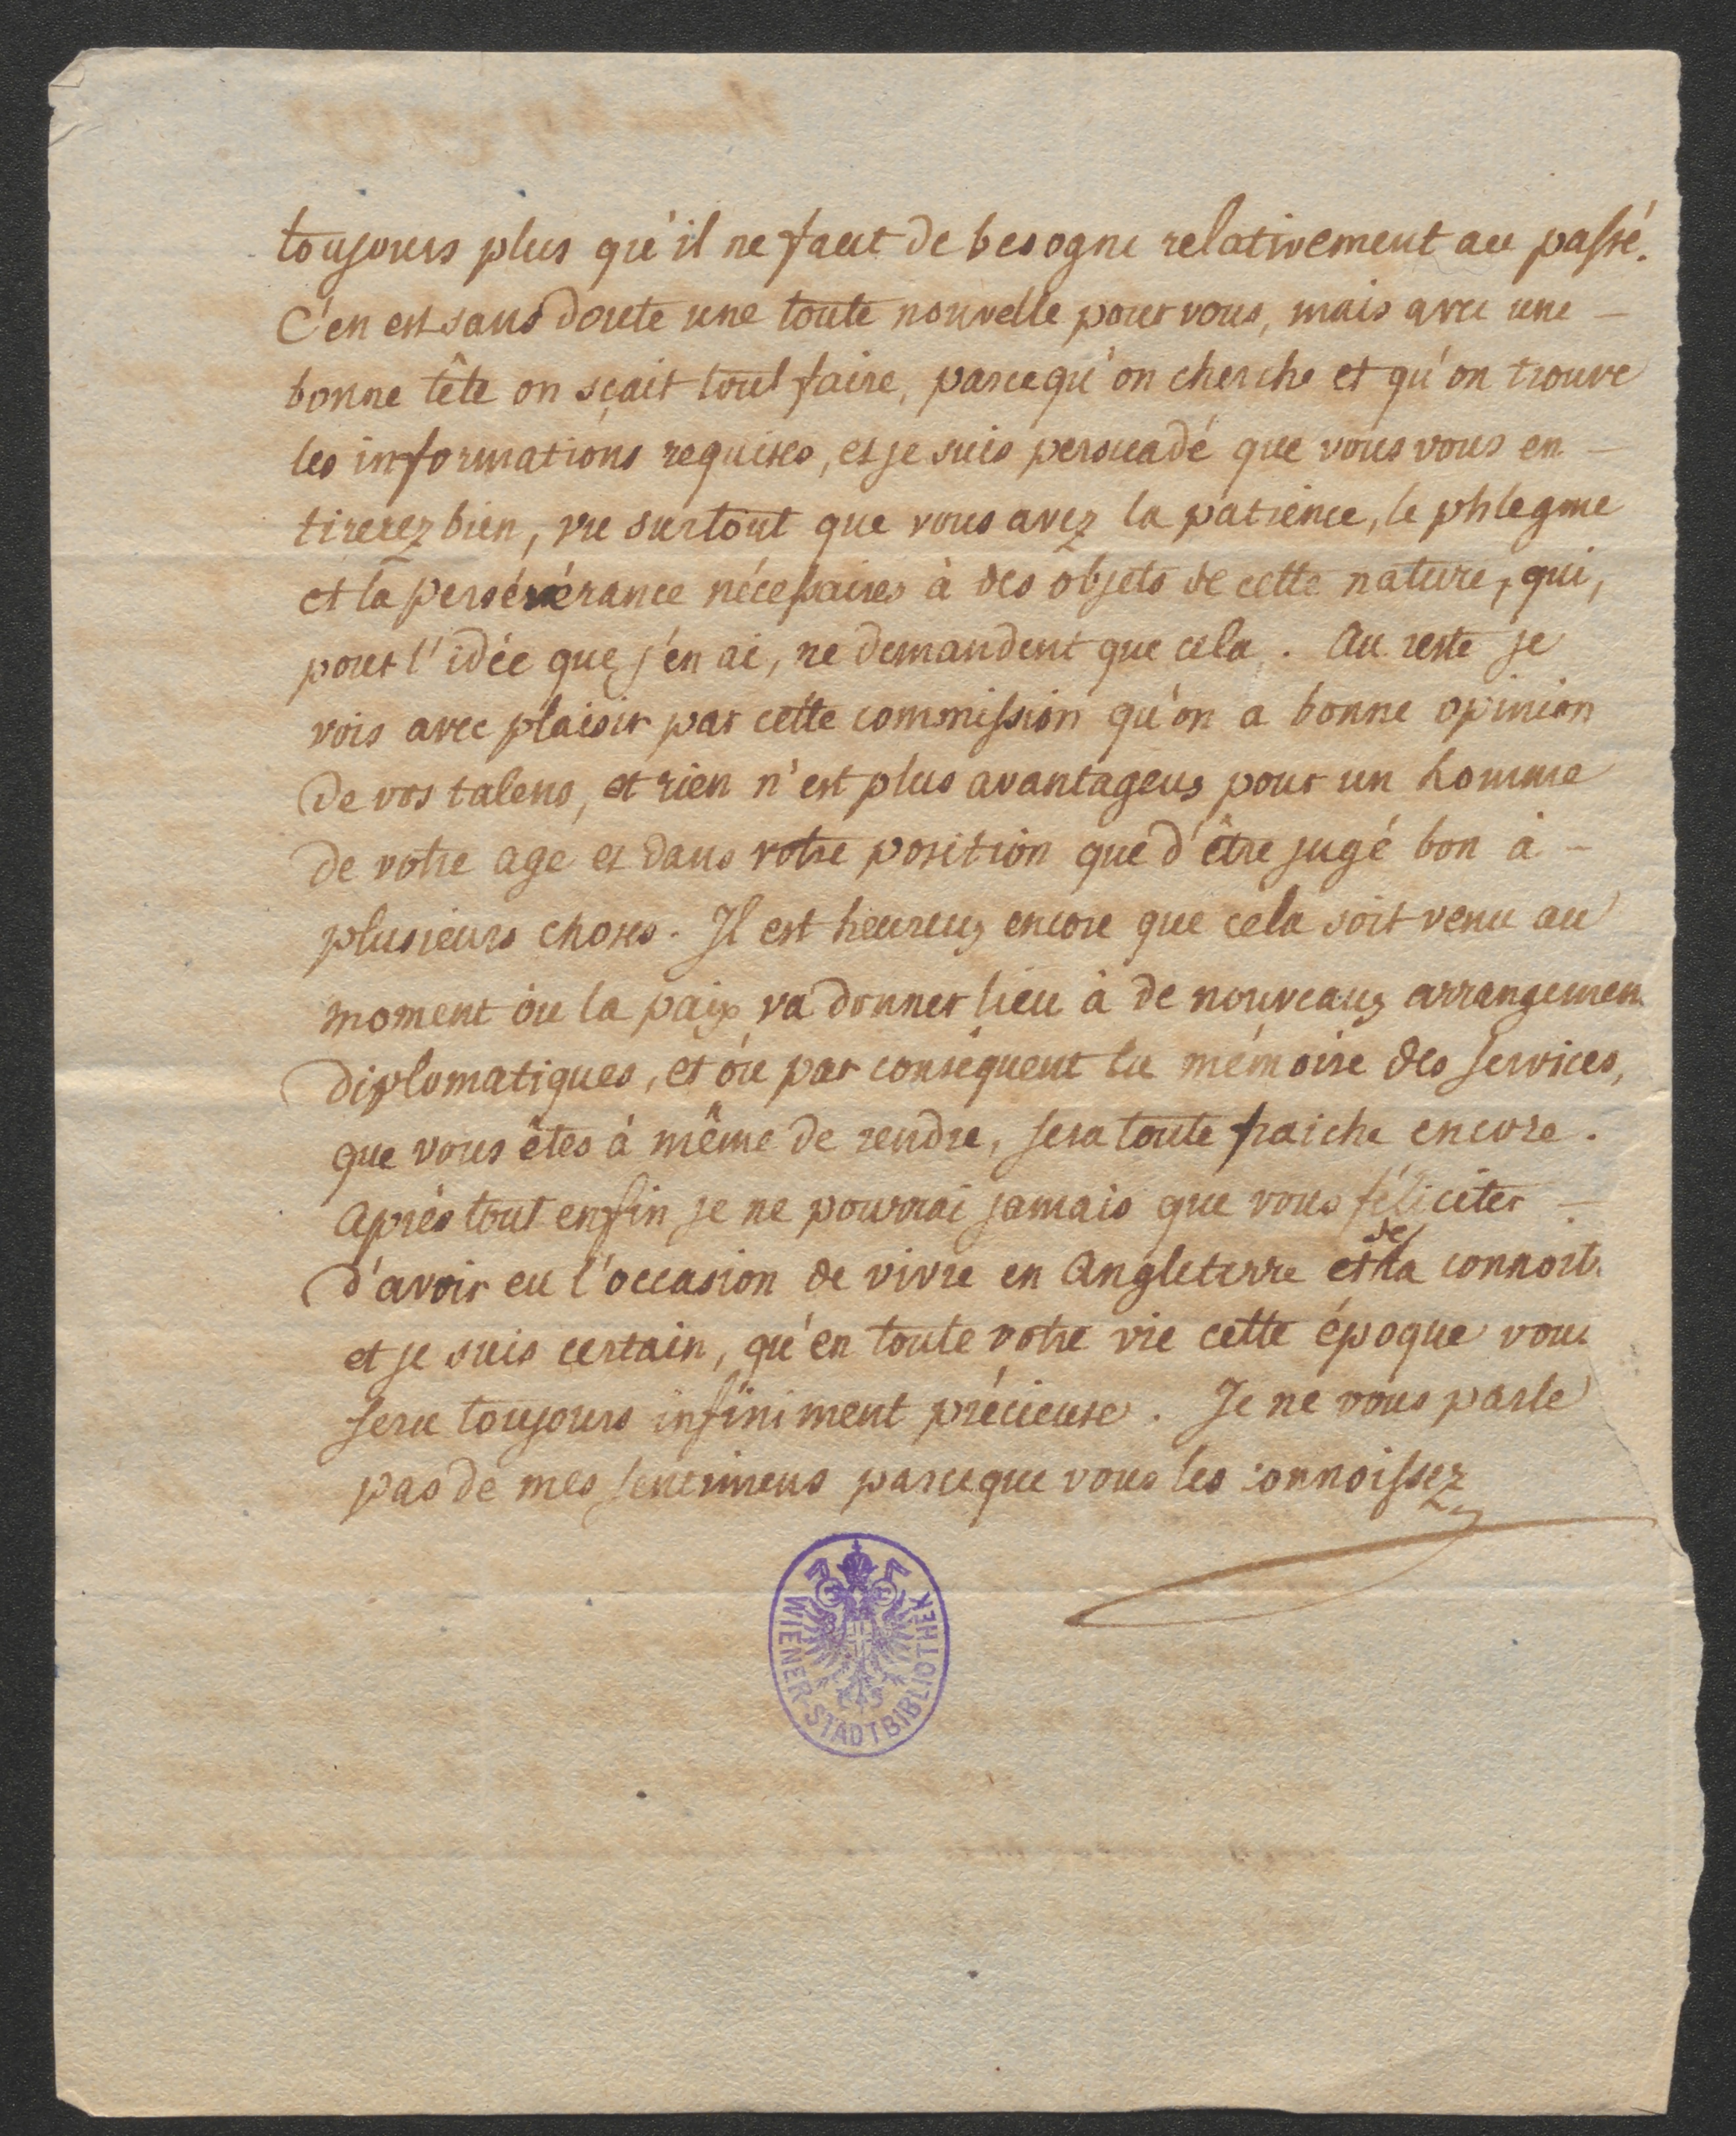 toujours plus qu'il ne faut de besogne relativement au passé.
C'en est sans doute une toute nouvelle pour vous, mais avec une –
bonne tête on sçait tout faire, parcequ'on cherche et qu'on trouve
les informations requises, et je suis persuadé que vous vous en –
tirerez bien, vu surtout que vous avez la patience, le phlegme
et la persévérance nécessaires à des objets de cette nature, qui,
pour l'idée que j'en ai, ne demandent que cela. Au reste je
vois avec plaisir par cette commission qu'on a bonne opinion
de vos talens, et rien n'est plus avantageux pour un homme
de votre age et dans votre position que d'être jugé bon à –
plusieurs choses. Il est heureux encore que cela soit venu au
moment où la paix va donner lieu à de nouveaux arrangemen
diplomatiques, et où par conséquent la mémoire des services,
que vous êtes à même de rendre, sera toute fraiche encore.
Après tout enfin je ne pourrai jamais que vous féliciter –
d'avoir eu l'occasion de vivre en Angleterre et de la connoit
et je suis certain, qu'en toute votre vie cette époque vous
sera toujours infiniment précieuse. Je ne vous parle
pas de mes sentimens parceque vous les connoissez
WIENER STADTBIBLIOTHEK